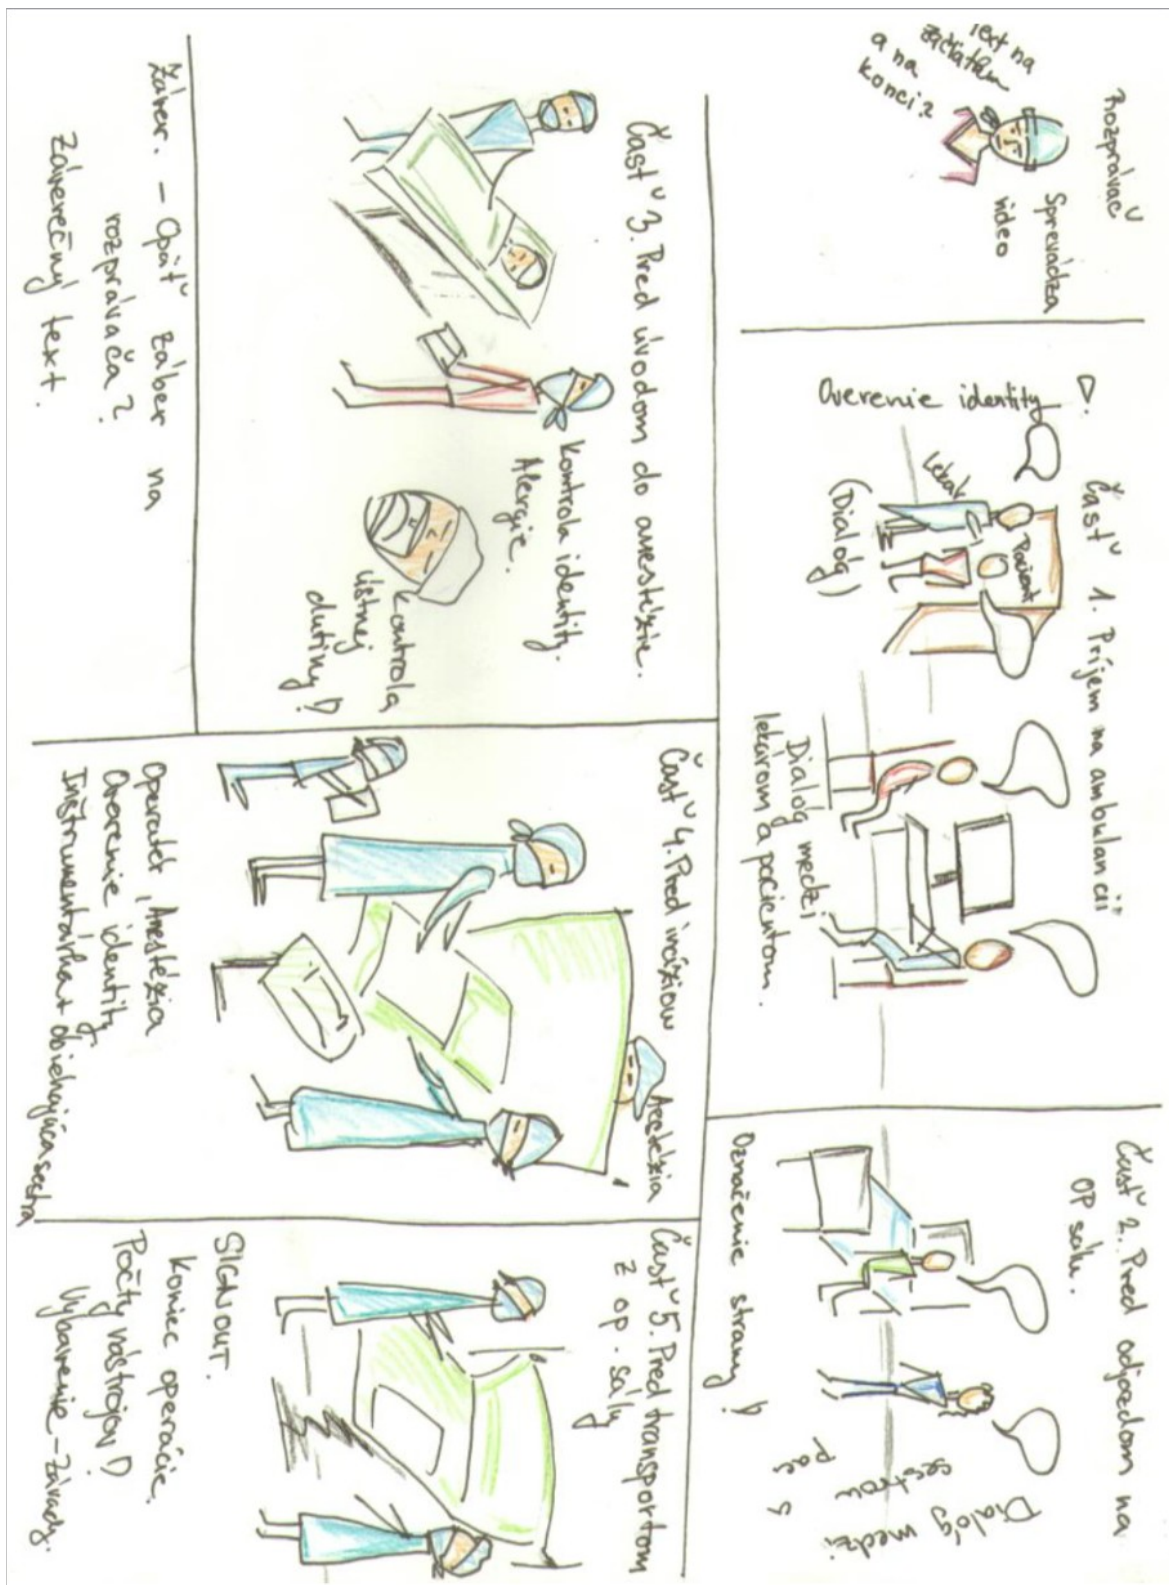 Rozprávač
Sprevádza
video
Text na
začiatku
a na
konci?
Časť 1. Príjem na ambulancii
Overenie identity!
Lekár
Pacient
(Dialóg)
Dialóg medzi
lekárom a pacientom.
Časť 2. Pred odjazdom na
OP sálu.
Dialóg medzi
sestrou
pac
Označenie strany!
Časť 3. Pred úvodom do anestézie.
Kontrola identity.
Alergie.
Kontrola
ústnej
dutiny!
Časť 4. Pred incíziou
Anestézia
Operatér, Anestézia
Overenie identity
Inštrumentárka + obiehajúca sestra
Časť 5. Pred transportom
z op. sály
SIGN OUT.
Koniec operácie.
Počty nástrojov!
Vybavenie - závady.
Záver. - Opäť záber na
rozprávača?
Záverečný text.